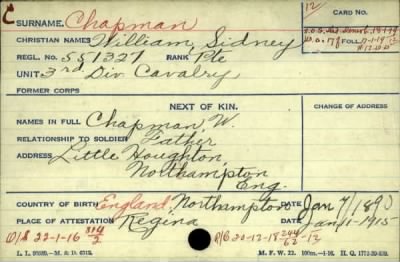 C
SURNAME. Chapman
12
CARD NO.
CHRISTIAN NAMES William, Sidney
REGL. NO. 551327 RANK Pte
FOLL.
UNIT 3rd Div Cavalry
FORMER CORPS
NEXT OF KIN.
CHANGE OF ADDRESS
NAMES IN FULL Chapman W.
RELATIONSHIP TO SOLDIER Father
ADDRESS Little Houghton
Northampton
Eng.
COUNTRY OF BIRTH England Northampton DATE Jan 7/1890
PLACE OF ATTESTATION Regina DATE Jan 11-1915
O/S 22-1-16 R/C 20-12-18
M. F. W. 22.